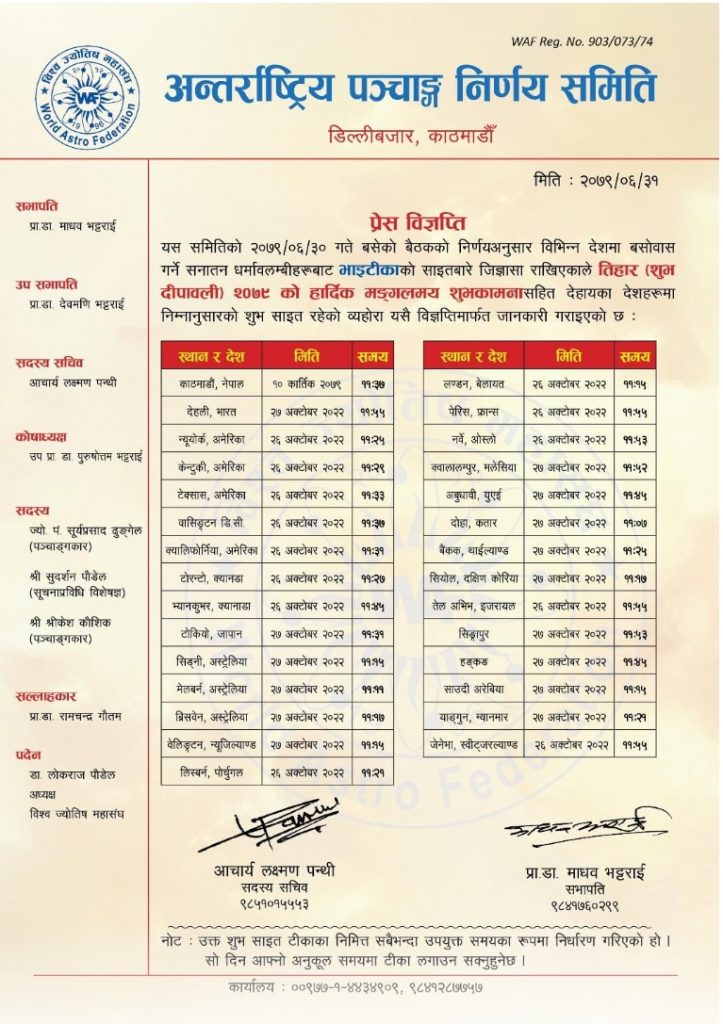 WAF Reg. No. 903/073/74
विश्व ज्योतिष महासंघ
WAF
1996
World Astro Federation
अन्तर्राष्ट्रिय पञ्चाङ्ग निर्णय समिति
डिल्लीबजार, काठमाडौँ
मिति : २०७९/०६/३१
सभापति
प्रा.डा. माधव भट्टराई
उप सभापति
प्रा.डा. देवमणि भट्टराई
सदस्य सचिव
आचार्य लक्ष्मण पन्थी
कोषाध्यक्ष
उप प्रा. डा. पुरुषोत्तम भट्टराई
सदस्य
ज्यो. पं. सूर्यप्रसाद ढुङ्गेल
(पञ्चाङ्गकार)
श्री सुदर्शन पौडेल
(सूचनाप्रविधि विशेषज्ञ)
श्री श्रीकेश कौशिक
(पञ्चाङ्गकार)
सल्लाहकार
प्रा.डा. रामचन्द्र गौतम
पदेन
डा. लोकराज पौडेल
अध्यक्ष
विश्व ज्योतिष महासंघ
प्रेस विज्ञप्ति
यस समितिको २०७९/०६/३० गते बसेको बैठकको निर्णयअनुसार विभिन्न देशमा बसोवास
गर्ने सनातन धर्मावलम्बीहरूबाट भाइटीकाको साइतबारे जिज्ञासा राखिएकाले तिहार (शुभ
दीपावली) २०७९ को हार्दिक मङ्गलमय शुभकामनासहित देहायका देशहरूमा
निम्नानुसारको शुभ साइत रहेको व्यहोरा यसै विज्ञप्तिमार्फत जानकारी गराइएको छ :
स्थान र देश मिति समय
काठमाडौं, नेपाल १० कार्तिक २०७९ ११:३७
देहली, भारत २७ अक्टोबर २०२२ ११:५५
न्यूयोर्क, अमेरिका २६ अक्टोबर २०२२ ११:२५
केन्टुकी, अमेरिका २६ अक्टोबर २०२२ ११:२९
टेक्सास, अमेरिका २६ अक्टोबर २०२२ ११:३३
वासिङ्टन डि.सी. २६ अक्टोबर २०२२ ११:३७
क्यालिफोर्निया, अमेरिका २६ अक्टोबर २०२२ ११:३१
टोरन्टो, क्यानडा २६ अक्टोबर २०२२ ११:२७
भ्यानकुभर, क्यानाडा २६ अक्टोबर २०२२ ११:४५
टोकियो, जापान २७ अक्टोबर २०२२ ११:३१
सिड्नी, अस्ट्रेलिया २७ अक्टोबर २०२२ ११:१५
मेलबर्न, अस्ट्रेलिया २७ अक्टोबर २०२२ ११:११
ब्रिसवेन, अस्ट्रेलिया २७ अक्टोबर २०२२ ११:१७
वेलिङ्टन, न्यूजिल्याण्ड २७ अक्टोबर २०२२ ११:१५
लिस्बर्न, पोर्चुगल २६ अक्टोबर २०२२ ११:२१
स्थान र देश मिति समय
लण्डन, बेलायत २६ अक्टोबर २०२२ ११:१५
पेरिस, फ्रान्स २६ अक्टोबर २०२२ ११:५५
नर्वे, ओस्लो २६ अक्टोबर २०२२ ११:५३
क्वालालम्पुर, मलेसिया २७ अक्टोबर २०२२ ११:५२
अबुधावी, युएई २७ अक्टोबर २०२२ ११:४५
दोहा, कतार २७ अक्टोबर २०२२ ११:०७
बैंकक, थाईल्याण्ड २७ अक्टोबर २०२२ ११:२५
सियोल, दक्षिण कोरिया २७ अक्टोबर २०२२ ११:१७
तेल अभिम, इजरायल २६ अक्टोबर २०२२ ११:५५
सिङ्गापुर २७ अक्टोबर २०२२ ११:५३
हङ्कङ २७ अक्टोबर २०२२ ११:४५
साउदी अरेबिया २७ अक्टोबर २०२२ ११:१५
याङ्गुन, म्यानमार २७ अक्टोबर २०२२ ११:२१
जेनेभा, स्वीट्जरल्याण्ड २६ अक्टोबर २०२२ ११:५५
आचार्य लक्ष्मण पन्थी
सदस्य सचिव
९८५१०१५५५३
प्रा.डा. माधव भट्टराई
सभापति
९८४१७६०२९९
नोट : उक्त शुभ साइत टीकाका निमित्त सबैभन्दा उपयुक्त समयका रूपमा निर्धारण गरिएको हो ।
सो दिन आफ्नो अनुकूल समयमा टीका लगाउन सक्नुहुनेछ ।
कार्यालय : ००९७७-१-४४३४९०९, ९८४१२८७७५७